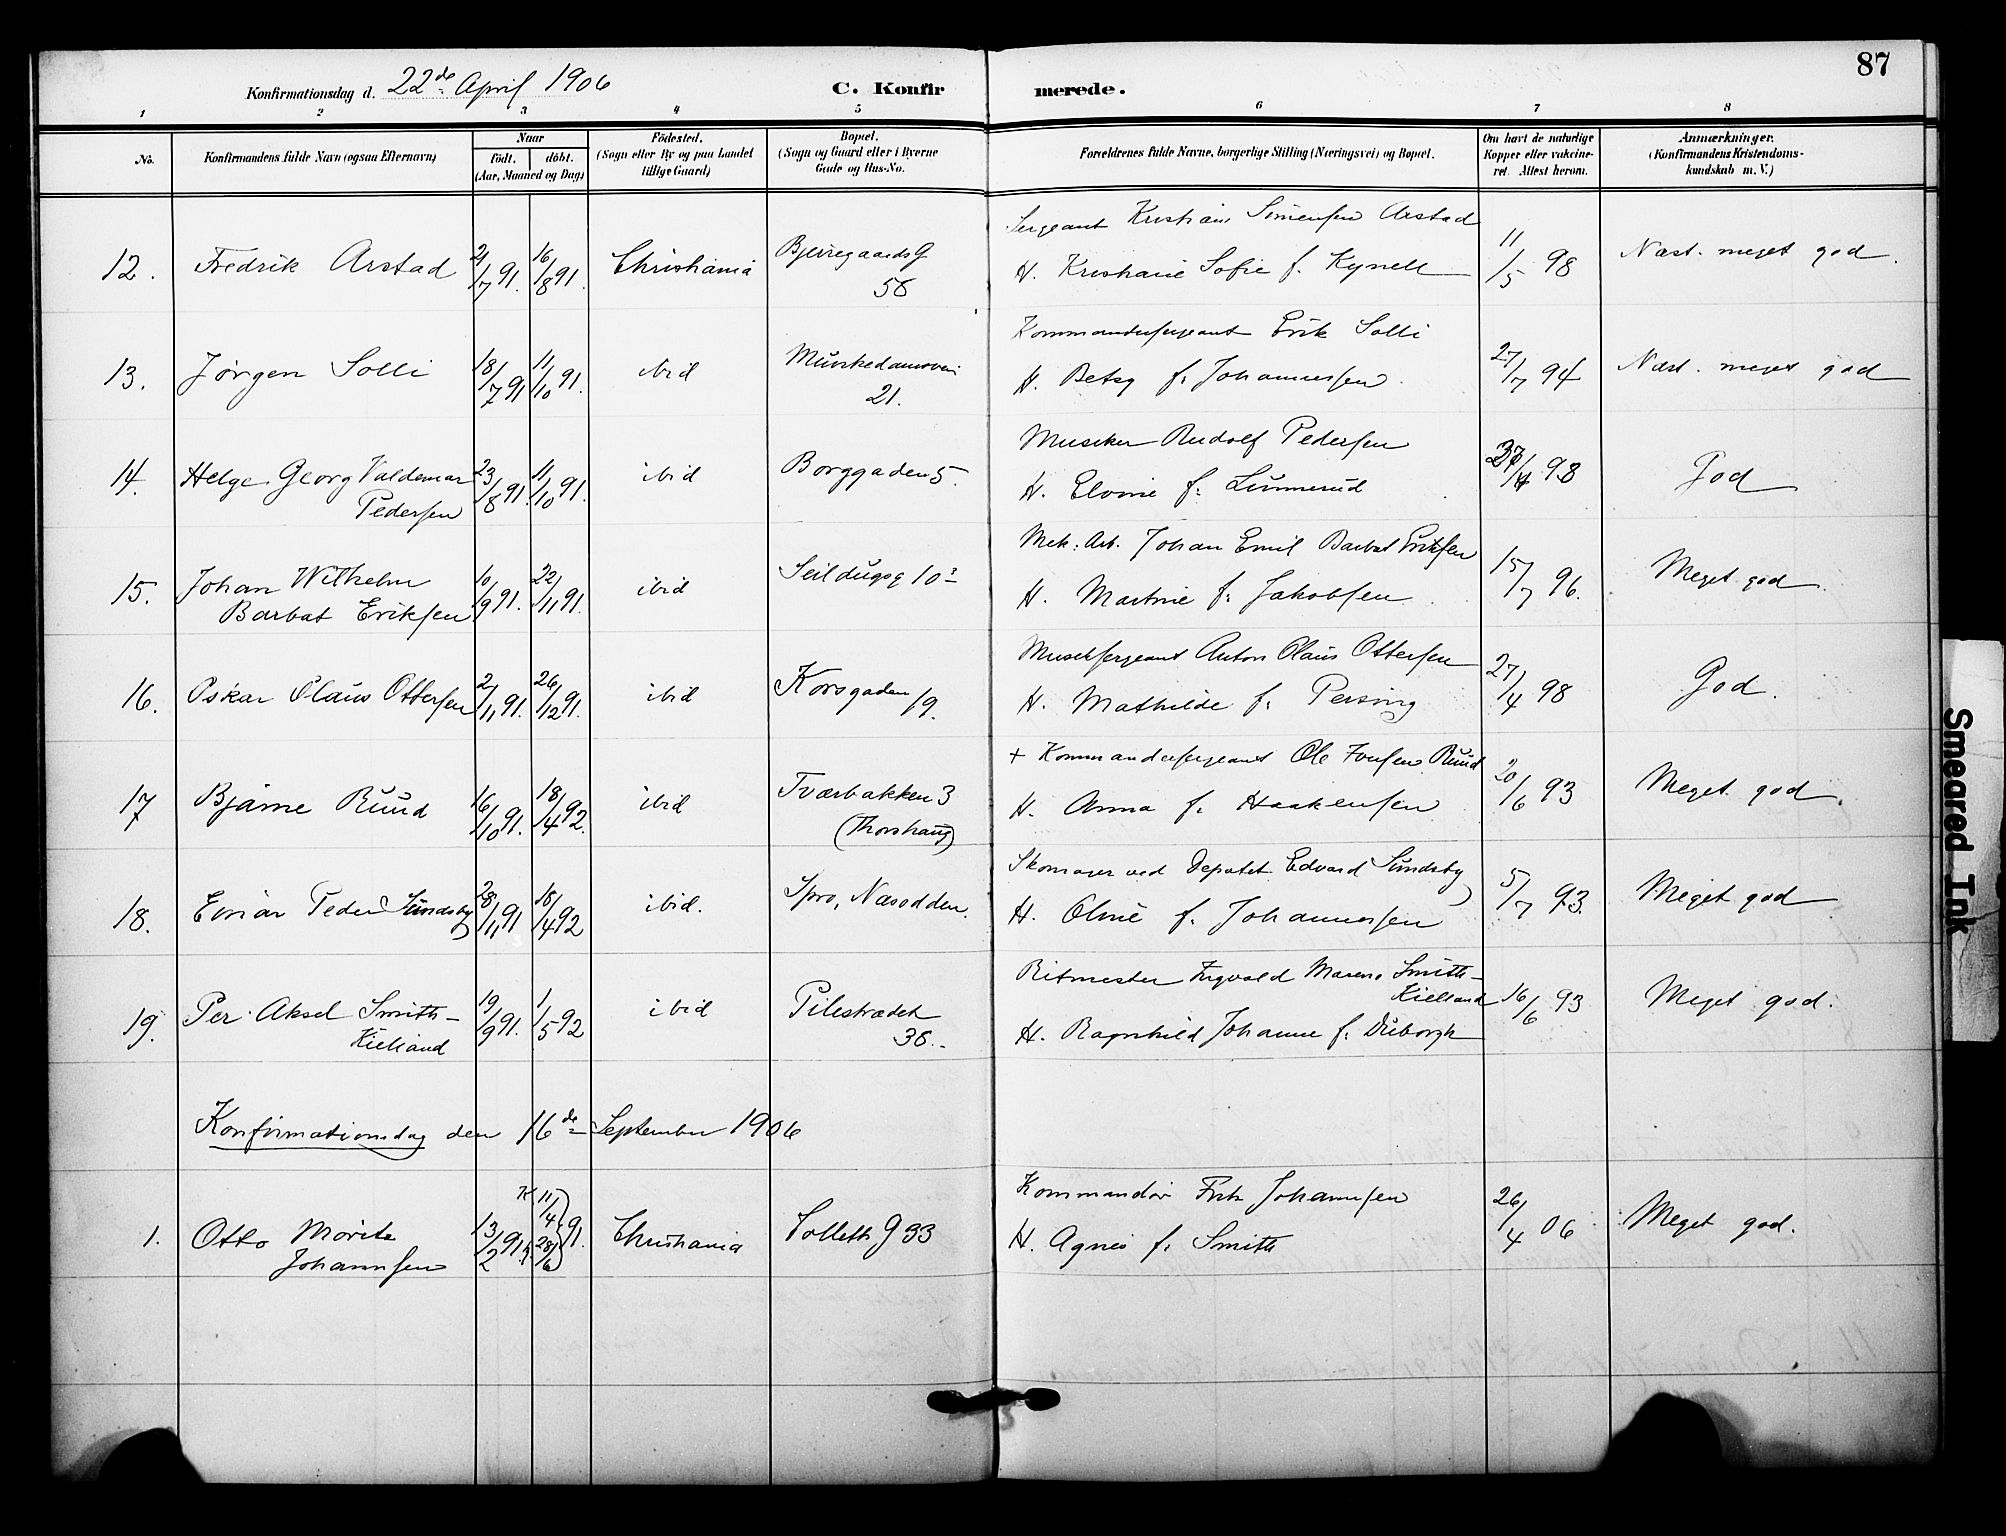 87
Konfirmationsdag d. 22de April 1906 C. Konfirmerede.
1 2 3 4 5 6 7 8
No. Konfirmandens fulde Navn (ogsaa Efternavn) Naar födt. döbt. (Aar, Maaned og Dag) Födested. (Sogn eller By og paa Landet tillige Gaard) Bopæl. (Sogn og Gaard eller i Byerne Gade og Hus-No. Forældrenes fulde Navne, borgerlige Stilling (Næringsvei) og Bopæl. Om havt de naturlige Kopper eller vakcineret. Attest herom. Anmærkninger. (Konfirmandens Kristendomskundskab m. V.)
Sergeant Kristian Simensen Arstad
12. Fredrik Arstad 21/7 91. 16/8 91. Christiania Bjerregaardsg 11/5 98 Næst. meget god.
56 H. Kristiane Sofie f. Kynell
Kommandersergeant Erik Solli
13. Jörgen Solli 18/7 91 11/10 91. ibid Munkedamsvei 27/7 94 Næst. meget god
21. H. Betsy f. Johannesen
Musiker Rudolf Pedersen
14. Helge Georg Valdemar 23/8 91. 11/10 91. ibid Borggaden 5. /4 98 God
Pedersen H. f. Lunnerud
Mek. Arb. Johan Emil Barbat Eriksen
15. Johan Wilhelm 10/9 91. 22/11 91. ibid Seildugsg 10 15/7 96. Meget god
Barbat Eriksen H. Martine f. Jakobsen
Musiksergeant Anton Olaus Ottersen
16. Oskar Olaus Ottersen 2/11 91. 26/12 91. ibid Korsgaden 19. 27/4 98 God.
H. Mathilde f. Persing
+ Kommandersergeant Ole Ruud
17 Bjarne Ruud 16/10 91. 18/4 92. ibid Tværbakken 3 20/6 93 Meget god.
(Thorshaug) H. Anna f. Haakensen
Skomager ved Depotet Edvard Sundsby
18. Einar Peder Sundsby 28/11 91 18/4 92 ibid. Spro, Næsodden. 5/7 93. Meget god
H. Oline f. Johannesen
Ritmester Ingvald Smith-
Kielland
19. Per Aksel Smith- 19/9 91. 1/5 92 ibid Pilestrædet 16/6 93 Meget god.
Kielland 38. H. Ragnhild Johanne f. Duborgh
Konfirmationsdag den 16de September 1906
Kommandör Fritz Johannsen
1. Otto Moritz 13/2 91. K 11/4 28/6 91. Christiania Sollieg 33 26/4 06 Meget god.
Johannsen H. Agnes f. Smith
Smeared Ink